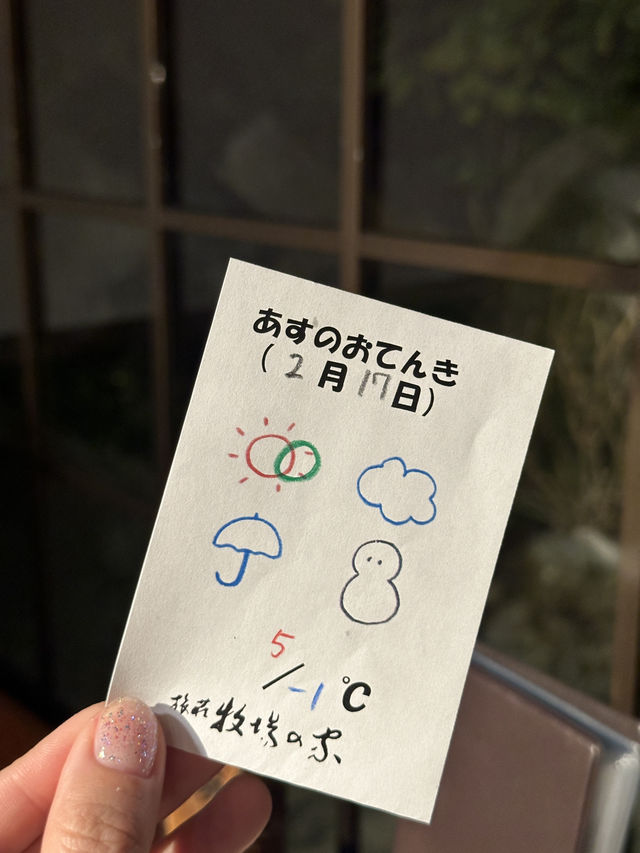 あすのおてんき
(2月17日)
5
/-1℃
旅荘 牧場の家